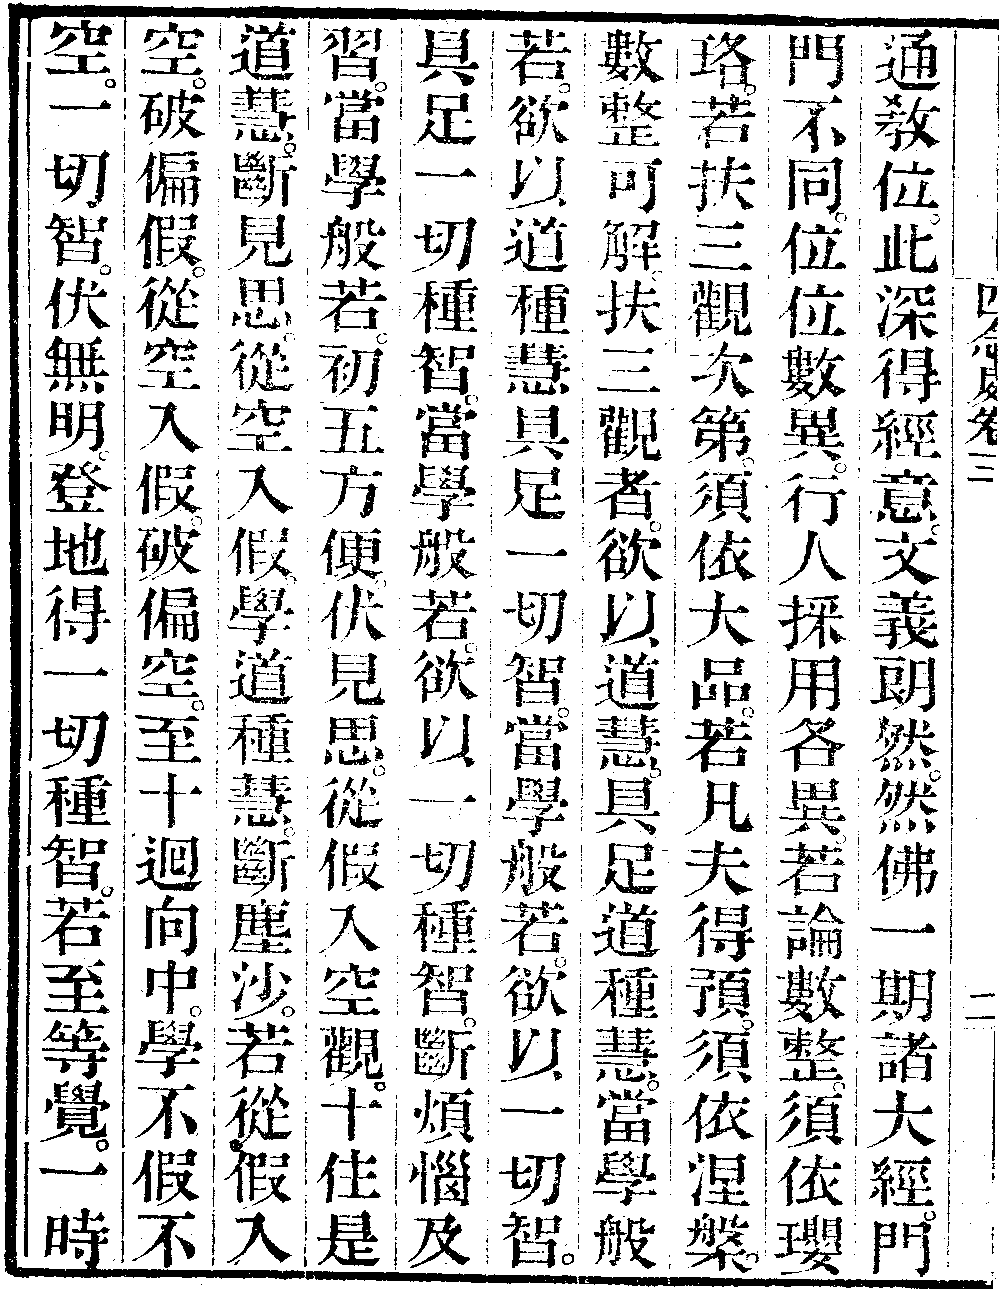 通教位。此深得經意。文義朗然。然佛一期諸大經。門
門不同。位位數異。行人採用各異。若論數整。須依瓔
珞。若扶三觀次第。須依大品。若凡夫得預。須依涅槃。
數整可解。扶三觀者。欲以道慧。具足道種慧。當學般
若。欲以道種慧具足一切智。當學般若。欲以一切智。
具足一切種智。當學般若。欲以一切種智。斷煩惱及
習。當學般若。初五方便。伏見思。從假入空觀。十住是
道慧。斷見思。從空入假。學道種慧。斷塵沙。若從假入
空。破偏假。從空入假。破偏空。至十迴向中。學不假不
空。一切智。伏無明。登地得一切種智。若至等覺。一時